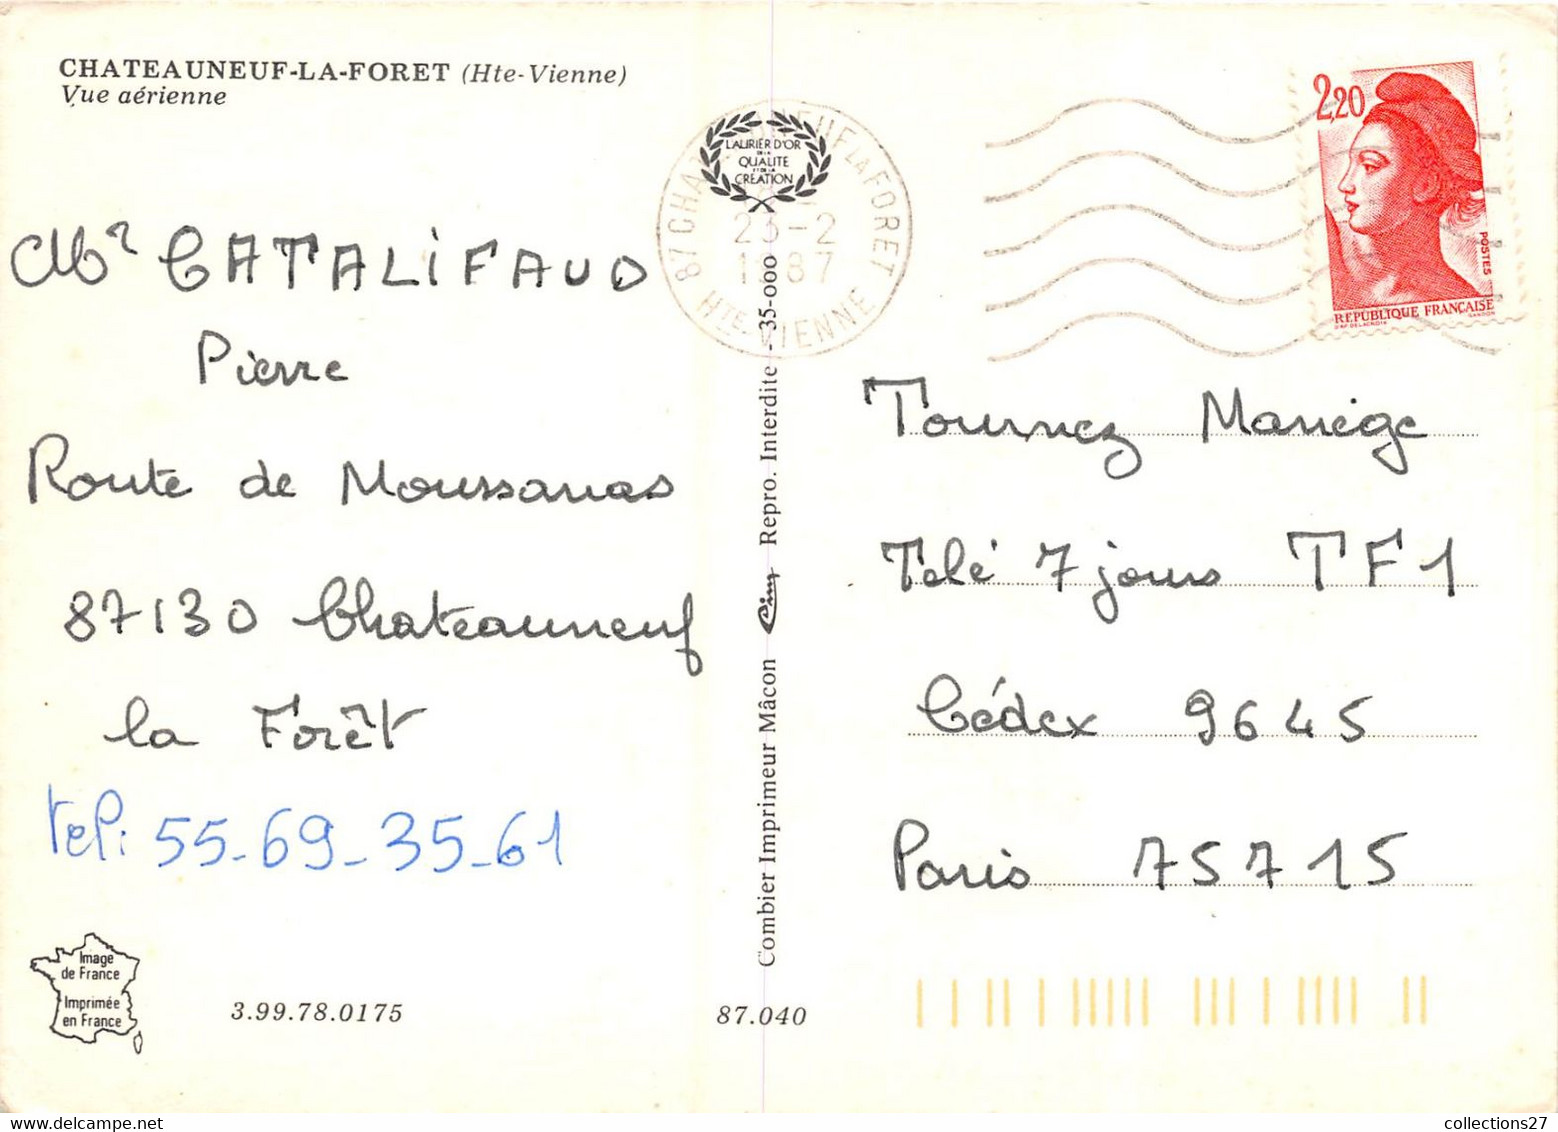 CHATEAUNEUF-LA-FORET (Hte-Vienne)
Vue aérienne
Mr CATALIFAUD
Pierre
Route de Moussanas
87130 Chateauneuf
la Forêt
tel: 55-69-35-61
Image
de France
Imprimée
en France
3.99.78.0175
87.040
Combier Imprimeur Mâcon Cim Repro. Interdite - 35-000
LAURIER D'OR
DE LA
QUALITE
ET DE LA
CREATION
87 CHATEAUNEUF LA FORET
23-2
1987
HTE-VIENNE
2,20
POSTES
REPUBLIQUE FRANÇAISE
D'AP. DELACROIX GANDON
Tournez Manège
Télé 7 jours TF1
Cédex 9645
Paris 75715
collections27